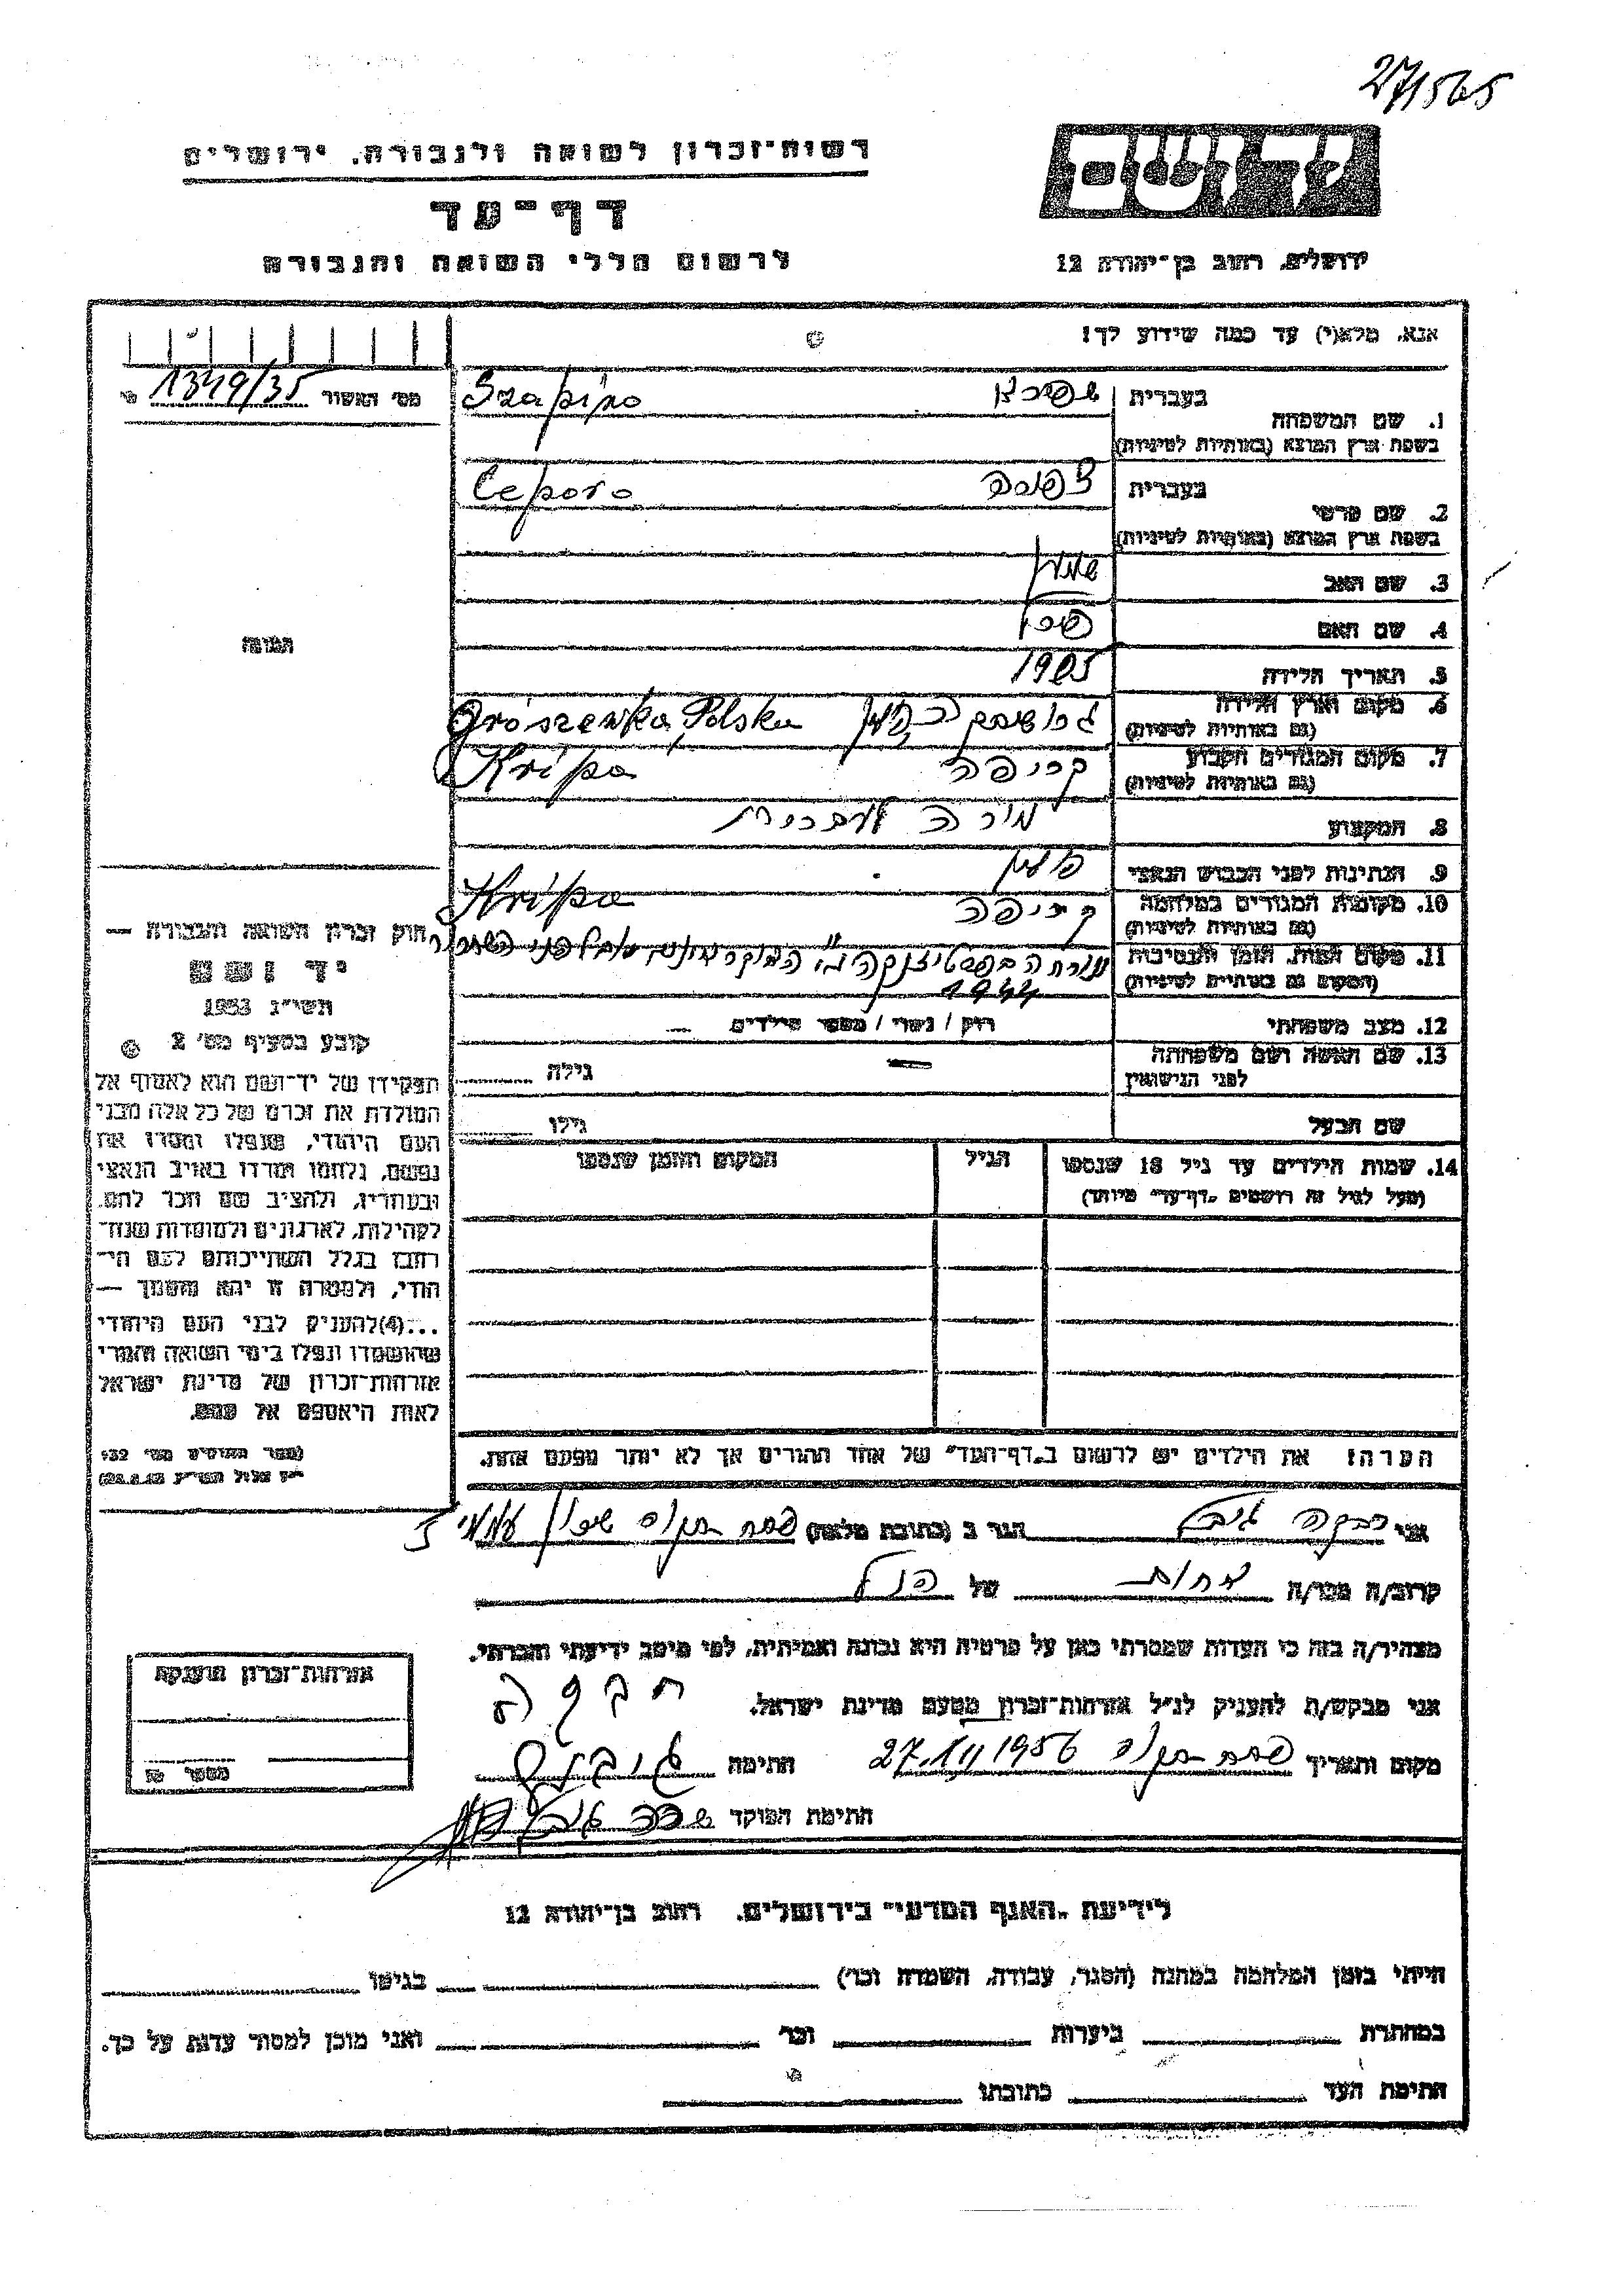 27/565
רשות-זכרון לשואה ולגבורה, ירושלים
דף-עד
לרשום חללי השואה והגבורה
יד ושם
ירושלים, רחוב בן-יהודה 12
אנא, מלא(י) עד כמה שידוע לך!
מס' האשור 1349/35
1. שם המשפחה בעברית שפירא
בשפת ארץ המוצא (באותיות לטיניות) Szapiro
2. שם פרטי בעברית צפורה
בשפת ארץ המוצא (באותיות לטיניות) Cepora
3. שם האב
4. שם האם
5. תאריך הלידה 1905
6. מקום וארץ הלידה
(גם באותיות לטיניות) Gròszewka, Polska
7. מקום המגורים הקבוע קריפה
(גם באותיות לטיניות) Kripa
8. המקצוע מורה לעברית
9. הנתינות לפני הכבוש הנאצי פולין
10. מקומות המגורים במלחמה קריפה
(גם באותיות לטיניות) Kripa
11. מקום המות, הזמן והנסיבות
(המקום גם באותיות לטיניות) 1944
12. מצב משפחתי רוק / נשוי / מספר הילדים —
13. שם האשה ושם משפחתה — גילה
לפני הנישואין
שם הבעל גילו
14. שמות הילדים עד גיל 18 שנספו הגיל המקום והזמן שנספו
(מעל לגיל זה רושמים „דף-עד" מיוחד)
הערה! את הילדים יש לרשום ב„דף-העד" של אחד ההורים אך לא יותר מפעם אחת.
התמונה
חוק זכרון השואה והגבורה —
יד ושם
תשי"ג 1953
קובע בסעיף מס' 2
תפקידו של יד-ושם הוא לאסוף אל
המולדת את זכרם של כל אלה מבני
העם היהודי, שנפלו ומסרו את
נפשם, נלחמו ומרדו באויב הנאצי
ובעוזריו, ולהציב שם וזכר להם,
לקהילות, לארגונים ולמוסדות שנח-
רבו בגלל השתייכותם לעם הי-
הודי, ולמטרה זו יהא מוסמך —
...(4) להעניק לבני העם היהודי
שהושמדו ונפלו בימי השואה והמרי
אזרחות-זכרון של מדינת ישראל
לאות היאספם אל עמם.
(ספר החוקים מס' 132
י"ז אלול תשי"ג 28.8.53)
אני רבקה הגר ב (כתובת מלאה) פרדס חנה
קרוב/ה מכר/ה אחות של הנ"ל
מצהיר/ה בזה כי העדות שמסרתי כאן על פרטיה היא נכונה ואמיתית, לפי מיטב ידיעתי והכרתי.
אני מבקש/ת להעניק לנ"ל אזרחות-זכרון מטעם מדינת ישראל.
רבקה
מקום ותאריך פרדס חנה 27.III 1956 חתימה
חתימת הפוקד
אזרחות-זכרון הוענקה
מספר
לידיעת „האגף המדעי" בירושלים, רחוב בן-יהודה 12
הייתי בזמן המלחמה במחנה (הסגר, עבודה, השמדה וכו') בגיטו
במחתרת ביערות וכו' ואני מוכן למסור עדות על כך.
חתימת העד כתובתו